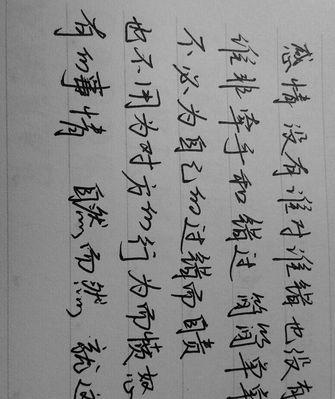 感情没有谁对谁错也没有
谁非牵手和错过简简单单
不必为自己的过错而自责
也不用为对方的行为而愤怒
有的事情自然而然就这